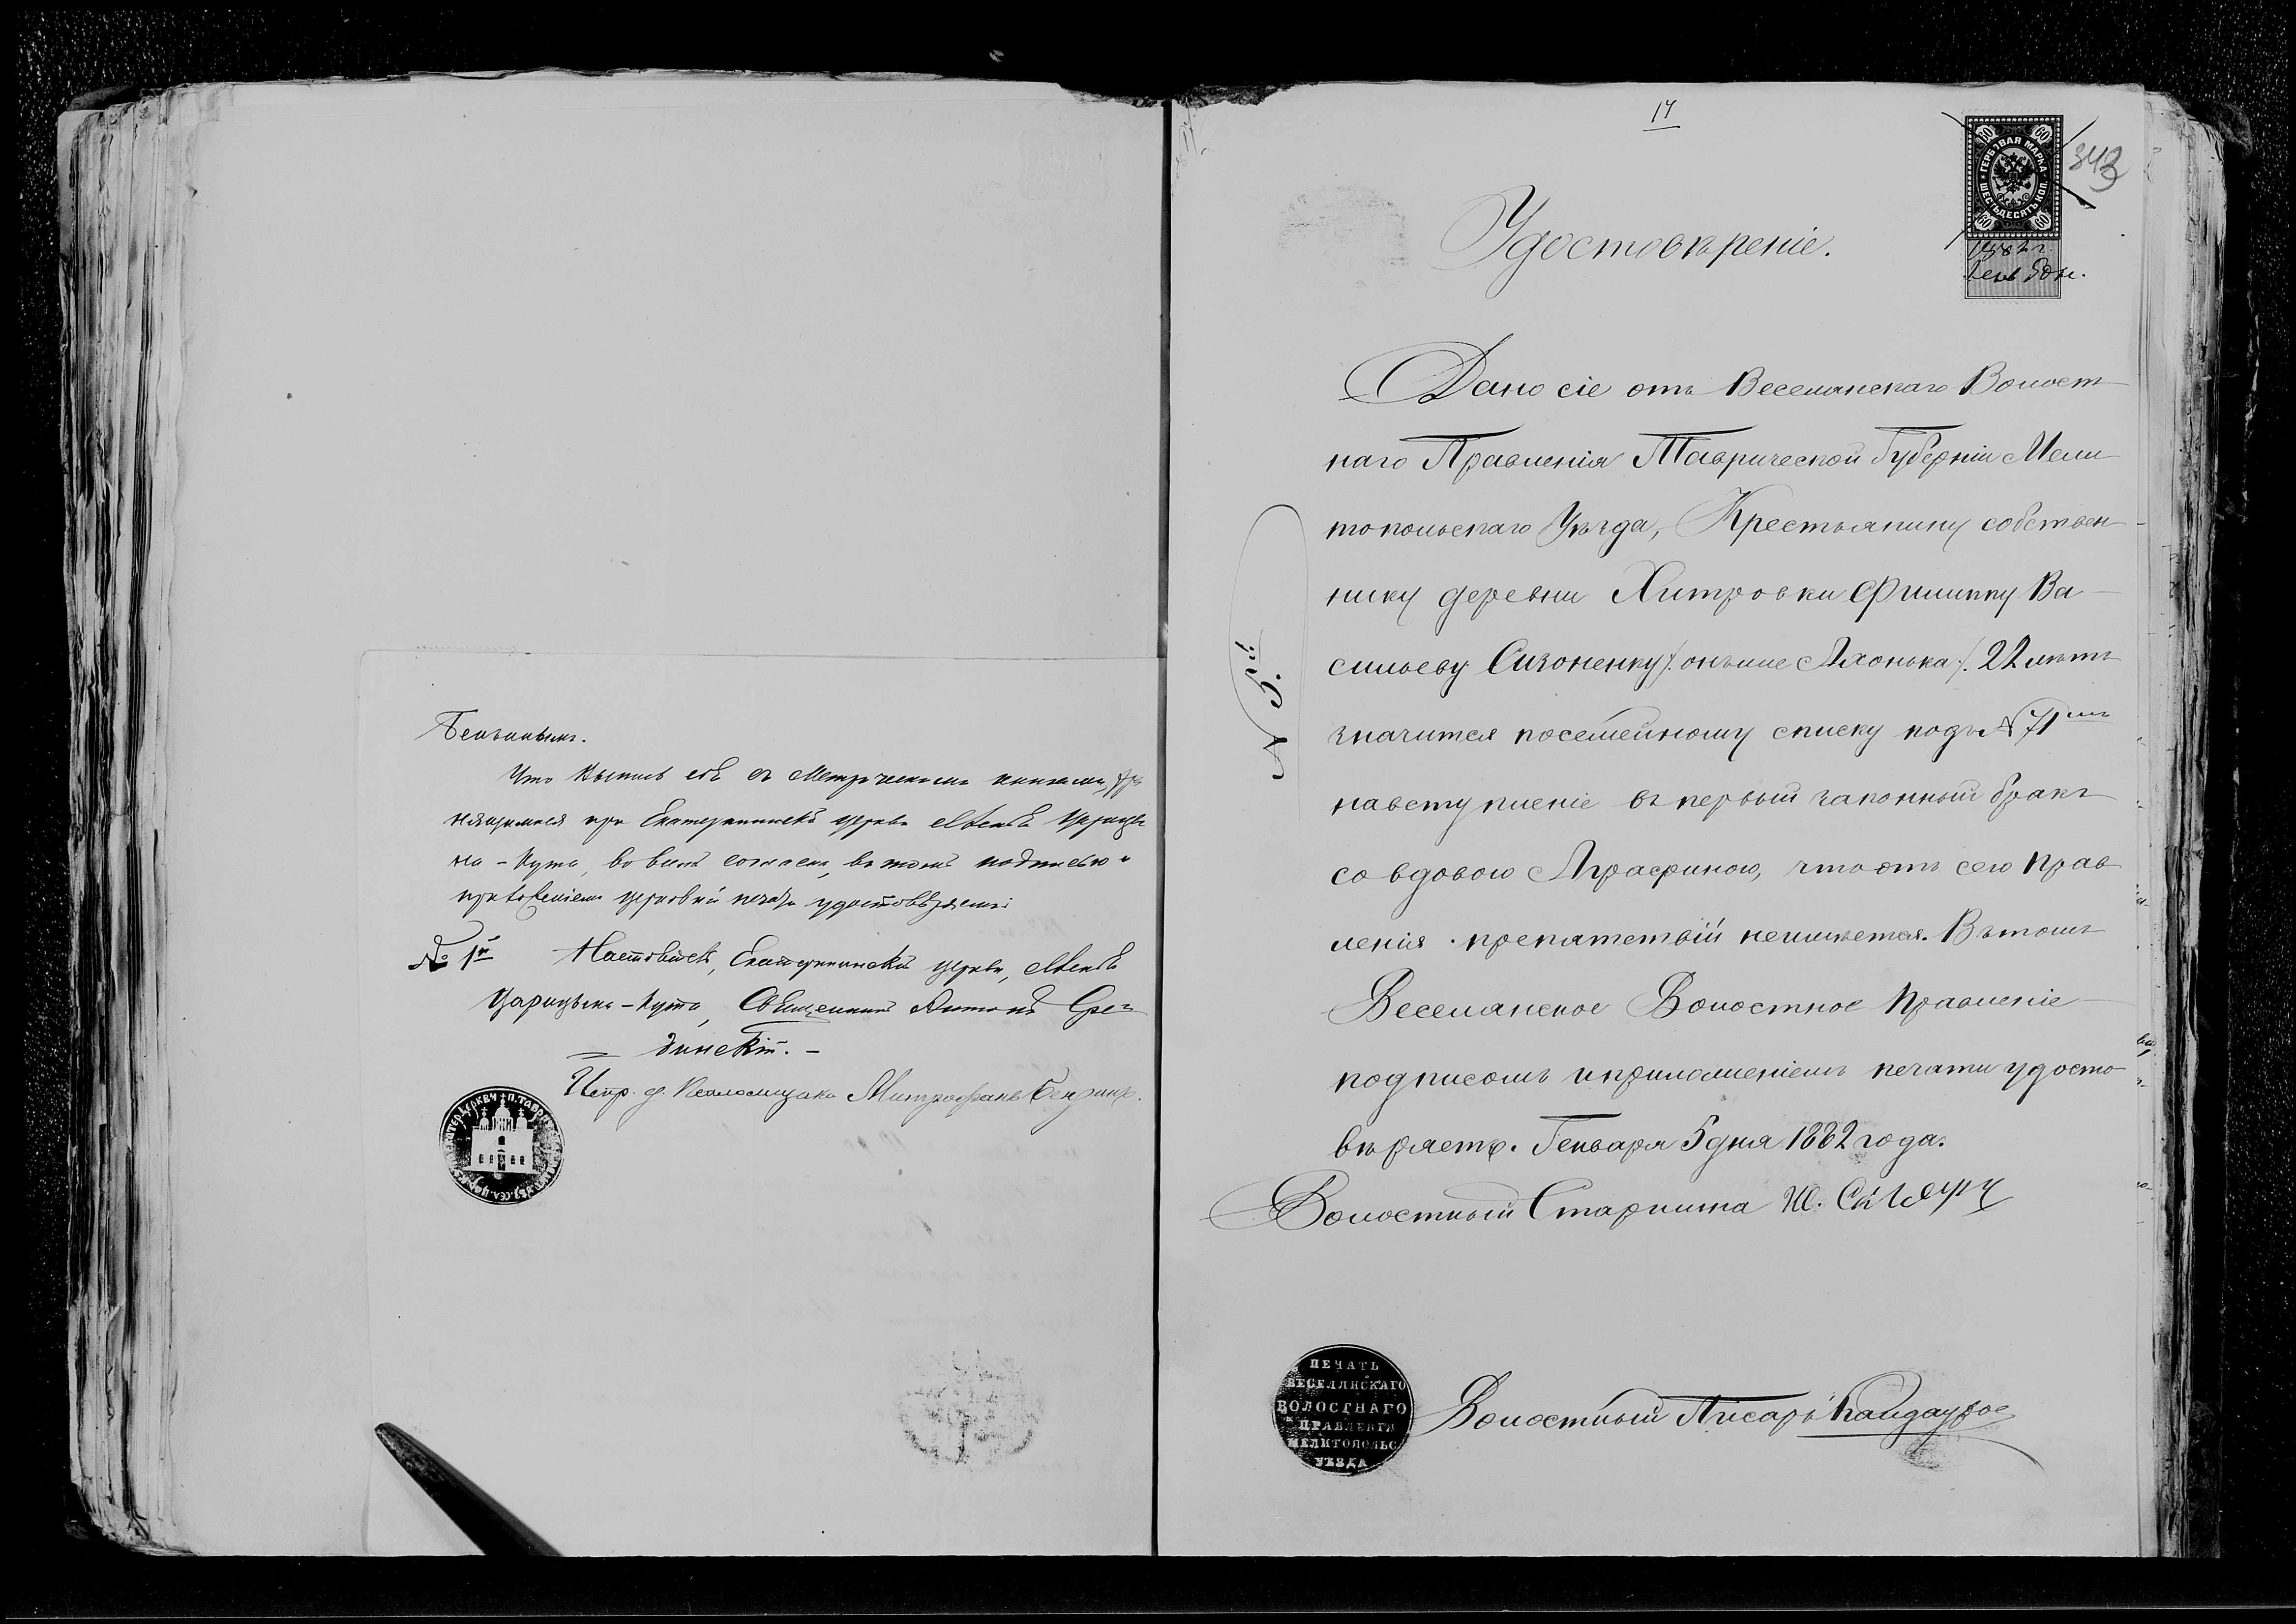 Что выпись сія съ метрическими книгами, хра
нящимися при Екатерининской церкви мѣст. Царицы
на-Кута, во всемъ согласна, въ томъ подписью и
приложеніемъ церковной печати удостовѣряемъ:
№ 1й Настоятель, Екатерининской церкви, мѣст.
Царицына-Кута, Священникъ Антоній Сре=
динскій. —
Испр. д. Псаломщика Митрофанъ
14
343
ГЕРБОВАЯ МАРКА
ШЕСТЬДЕСЯТЪ КОП.
60 60
60 60
1882 г.
Генв. 5 дн.
Удостовѣреніе.
Дано сіе отъ Веселянскаго Волост
наго Правленія Таврической Губерніи Мели
топольскаго Уѣзда, Крестьянину собствен
нику деревни Хитровки Филиппу Ва
сильеву Сизоненку /: онъ же Ляхонька :/ 22 лѣтъ
значится посемейному списку подъ № 71мъ
навступленіе въ первый законный бракъ
со вдовою Аграфиною, что отъ сего Прав
ленія препятствій неимѣется. Въ томъ
Веселянское Волостное Правленіе
подписомъ и приложеніемъ печати удосто
вѣряетъ. Генваря 5 дня 1882 года.
Волостный Старшина
№ 5й.
ПЕЧАТЬ
ВЕСЕЛЯНСКАГО
ВОЛОСТНАГО
ПРАВЛЕНІЯ
МЕЛИТОПОЛЬС
УѢЗДА
Волостный Писарь Кайдауров